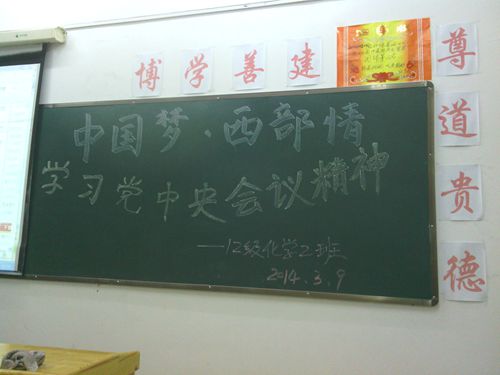 博学善建
尊道贵德
中国梦·西部情
学习党中央会议精神
——12级化学2班
2014.3.9